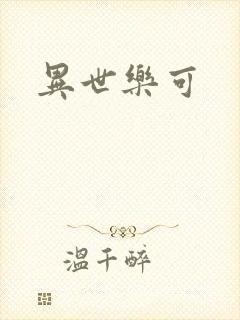 異世樂可
溫千醉